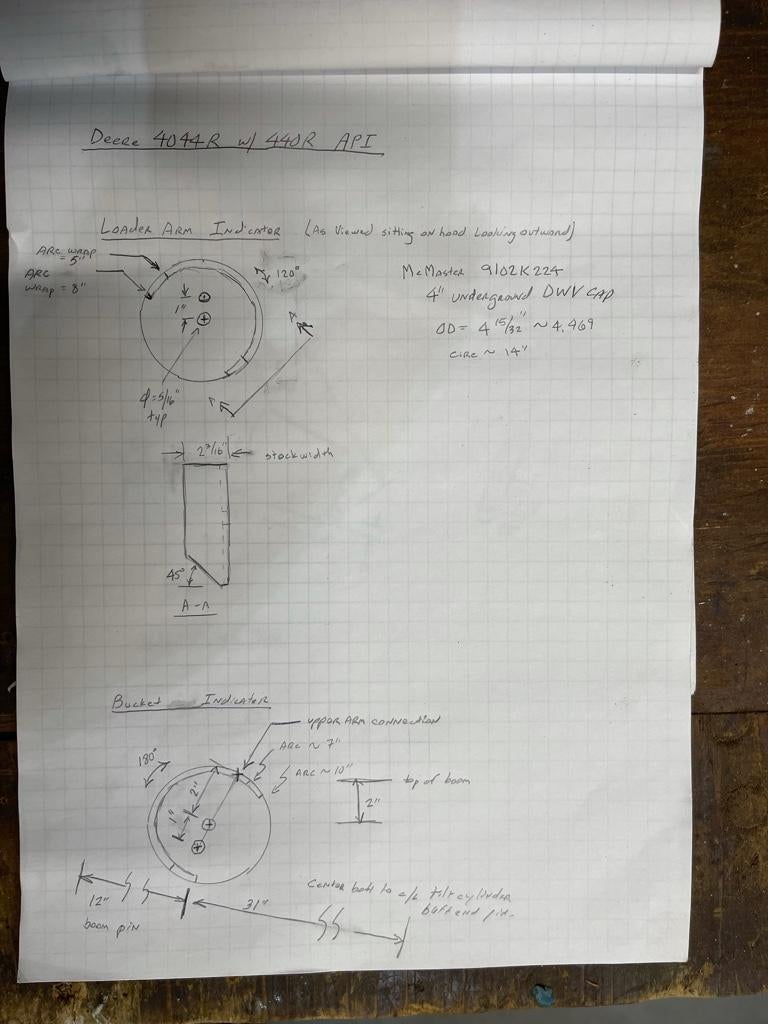 Deere 4044R w/ 440R API
Loader Arm Indicator (As Viewed sitting on hood Looking outward)
Arc wrap
= 5"
Arc
wrap = 8"
120°
1"
A
A
ϕ=5/16"
typ
McMaster 9102K224
4" underground DWV CAP
OD = 4 15/32" ~ 4.469
circ ~ 14"
2 3/16"
stock width
45°
A-A
Bucket Indicator
upper Arm connection
180°
Arc ~ 7"
Arc ~ 10"
top of boom
2"
1"
2"
12"
boom pin
31"
Center bolt to c/l tilt cylinder
butt end pin